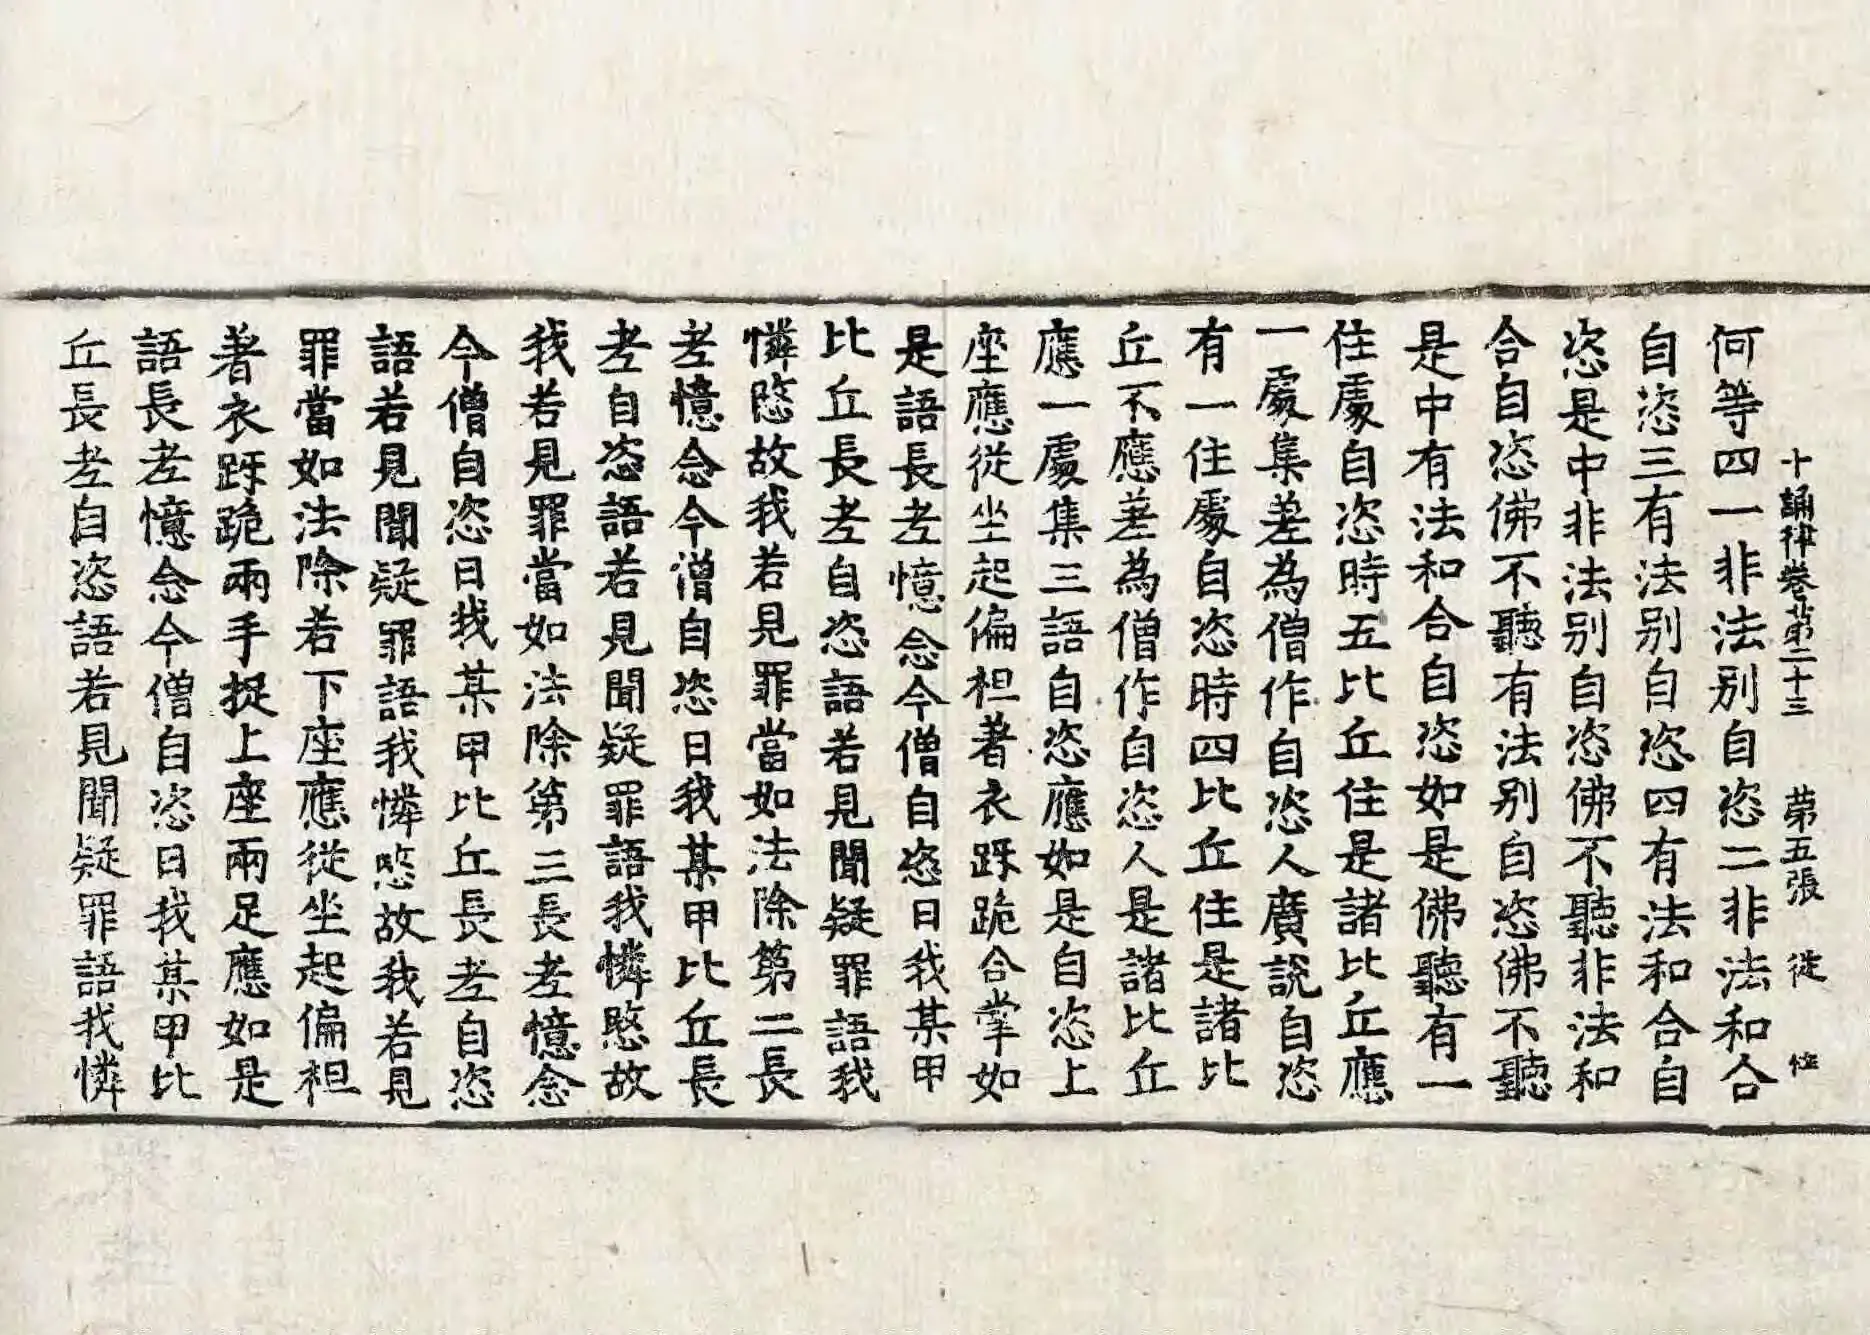 十誦律卷第二十三 第五張 従
何等四一非法別自恣二非法和合
自恣三有法別自恣四有法和合自
恣是中非法別自恣佛不聽非法和
合自恣佛不聽有法別自恣佛不聽
是中有法和合自恣如是佛聽有一
住處自恣時五比丘住是諸比丘應
一處集差為僧作自恣人廣說自恣
有一住處自恣時四比丘住是諸比
丘不應差為僧作自恣人是諸比丘
應一處集三語自恣應如是自恣上
座應從坐起偏袒著衣𨁝跪合掌如
是語長老憶念今僧自恣日我某甲
比丘長老自恣語若見聞疑罪語我
憐愍故我若見罪當如法除第二長
老憶念今僧自恣日我某甲比丘長
老自恣語若見聞疑罪語我憐愍故
我若見罪當如法除第三長老憶念
今僧自恣日我某甲比丘長老自恣
語若見聞疑罪語我憐愍故我若見
罪當如法除若下座應從坐起偏袒
著衣𨁝跪兩手捉上座兩足應如是
語長老憶念今僧自恣日我某甲比
丘長老自恣語若見聞疑罪語我憐